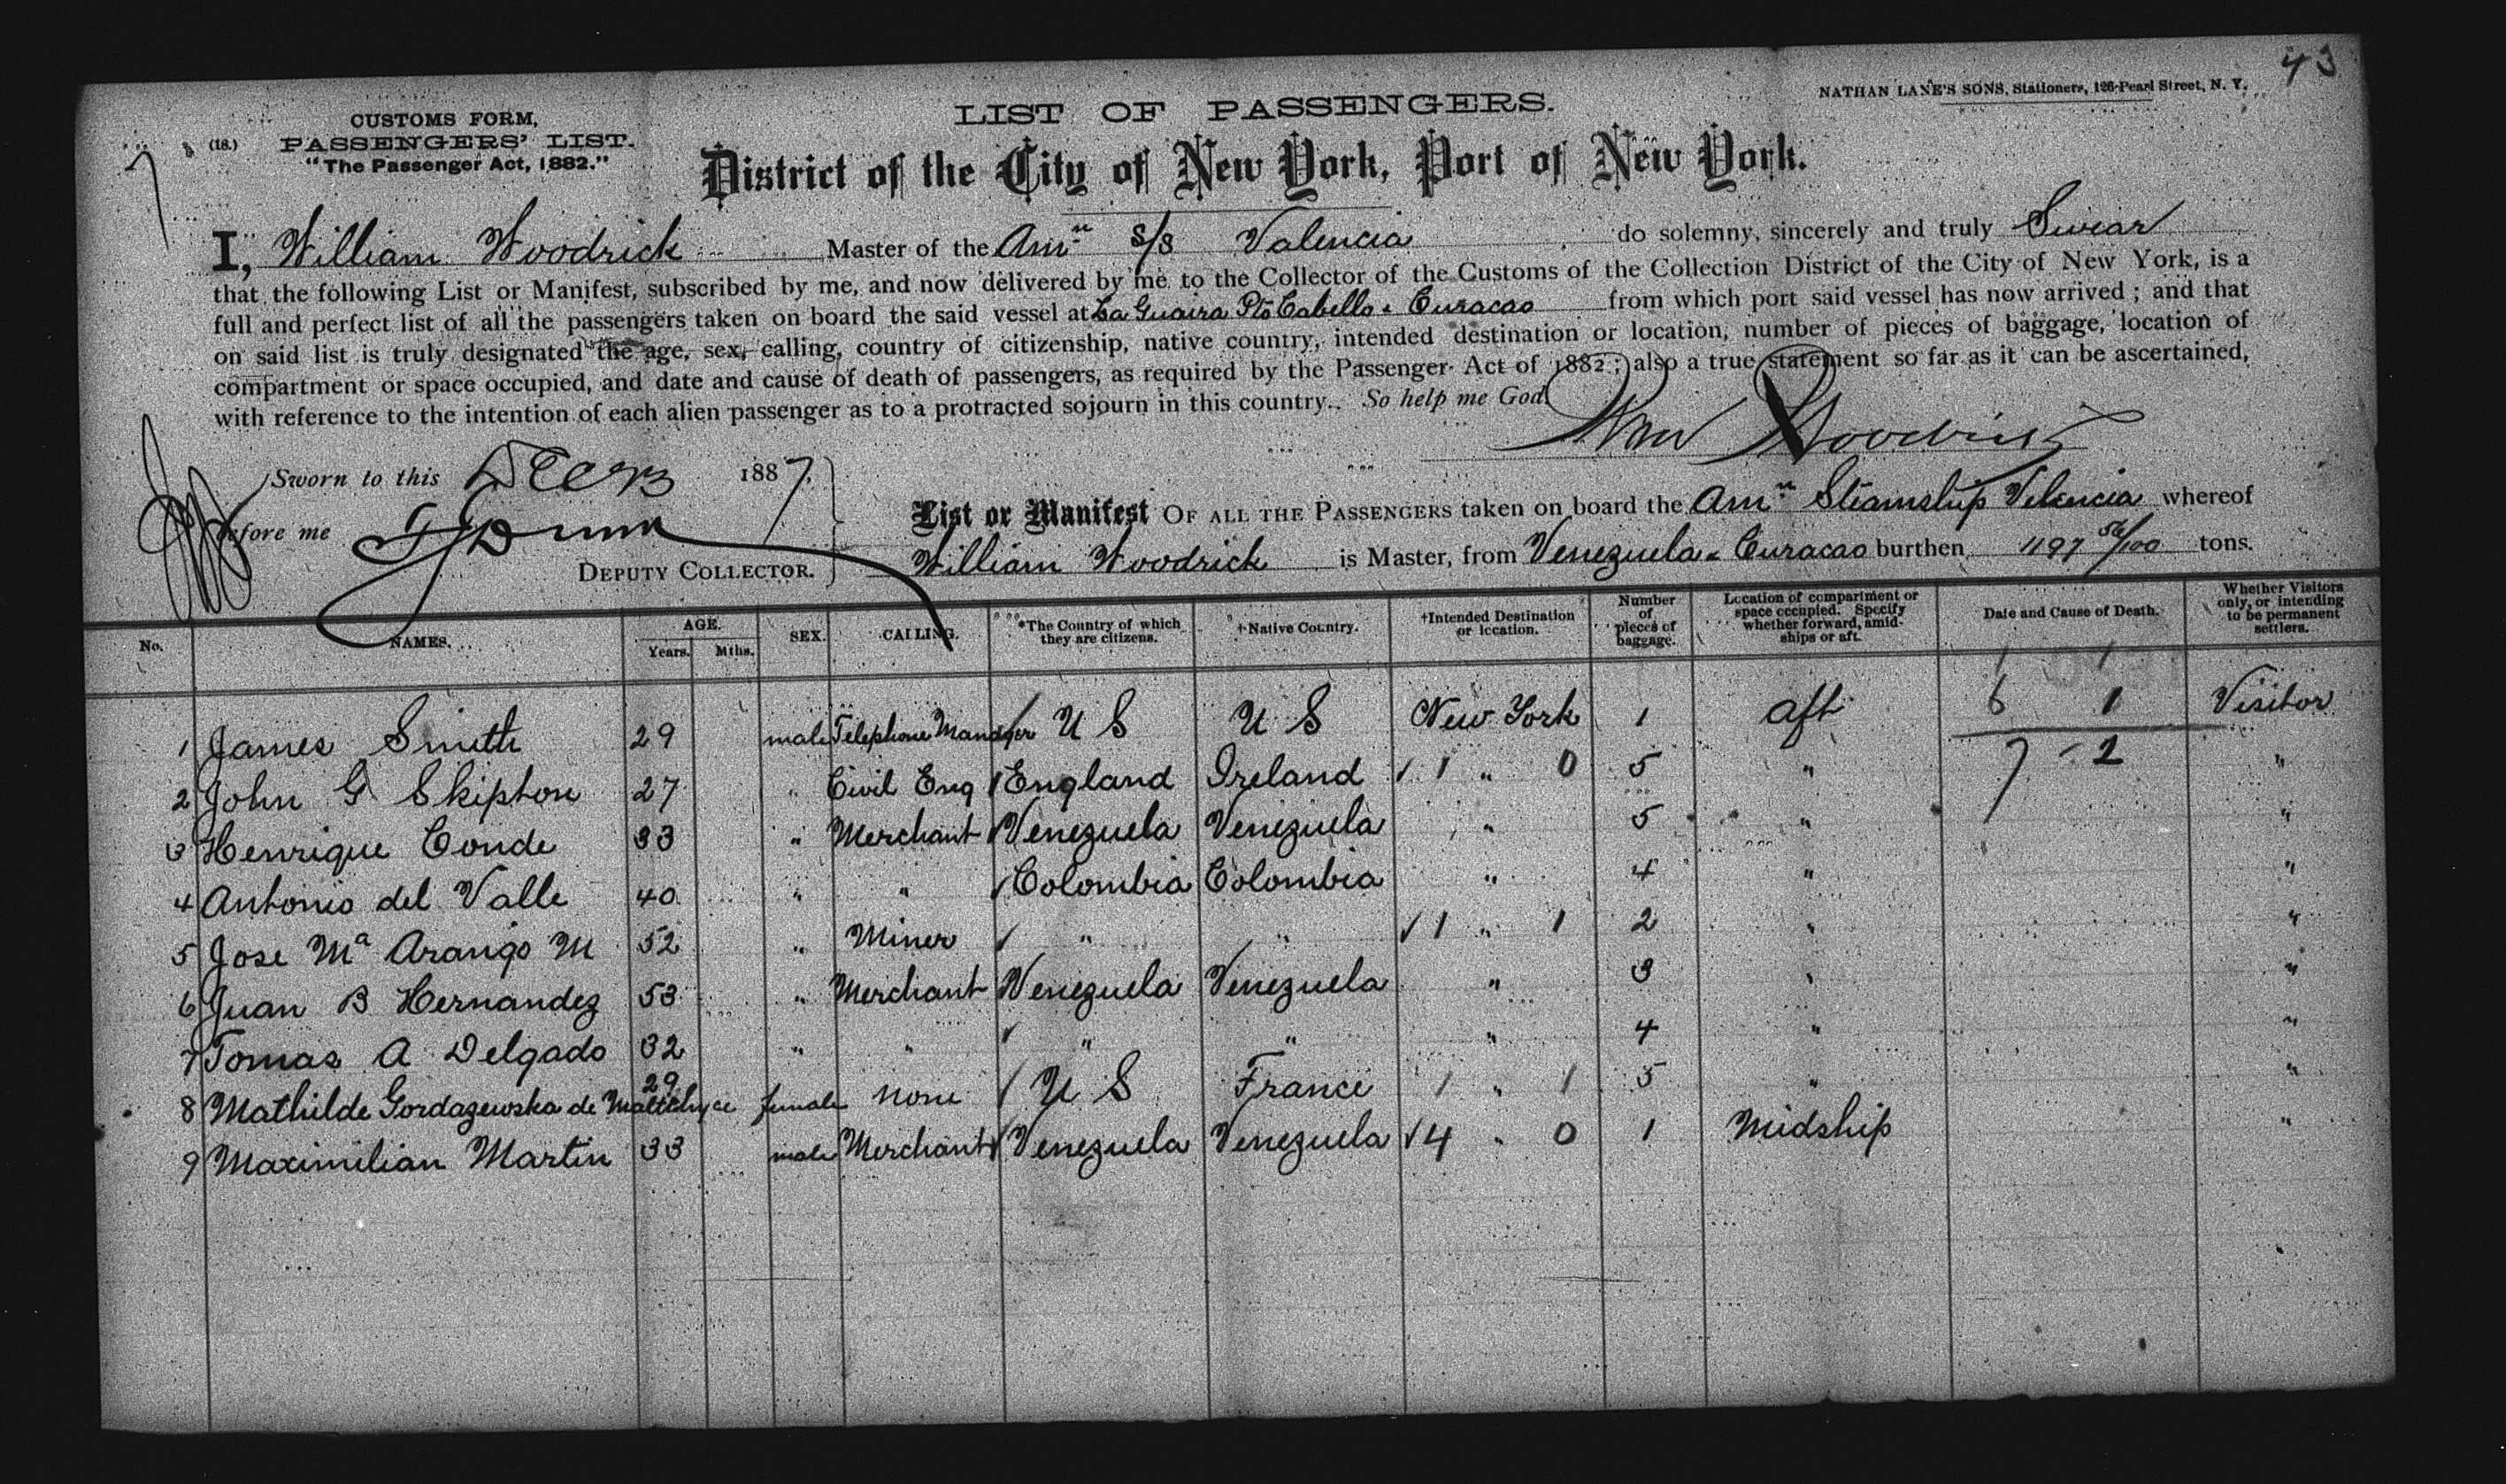 43
NATHAN LANE'S SONS, Stationers, 126 Pearl Street, N. Y.
(18.)
CUSTOMS FORM,
PASSENGERS' LIST.
"The Passenger Act, 1882."
LIST OF PASSENGERS.
District of the City of New York, Port of New York.
I, William Woodrick Master of the Amn S/S Valencia do solemny, sincerely and truly Swear
that the following List or Manifest, subscribed by me, and now delivered by me to the Collector of the Customs of the Collection District of the City of New York, is a
full and perfect list of all the passengers taken on board the said vessel at La Guaira Pto Cabello & Curacao from which port said vessel has now arrived; and that
on said list is truly designated the age, sex, calling, country of citizenship, native country, intended destination or location, number of pieces of baggage, location of
compartment or space occupied, and date and cause of death of passengers, as required by the Passenger Act of 1882; also a true statement so far as it can be ascertained,
with reference to the intention of each alien passenger as to a protracted sojourn in this country. So help me God
Wm Woodrick
Sworn to this 1887.
before me
DEPUTY COLLECTOR.
List or Manifest OF ALL THE PASSENGERS taken on board the Amn Steamship Valencia whereof
William Woodrick is Master, from Venezuela & Curacao burthen 1197 56/100 tons.
No. NAMES. AGE. Years. Mths. SEX. CALLING. *The Country of which they are citizens. †Native Country. †Intended Destination or location. Number of pieces of baggage. Location of compartment or space occupied. Specify whether forward, amidships or aft. Date and Cause of Death. Whether Visitors only, or intending to be permanent settlers.
1 James Smith 29 male Telephone Manager U S U S New York 1 aft 6 1 Visitor
2 John G Skipton 27 " Civil Eng England Ireland 1 " 0 5 " 7 - 2 "
3 Henrique Conde 33 " Merchant Venezuela Venezuela " 5 " "
4 Antonio del Valle 40 " " Colombia Colombia " 4 " "
5 Jose Ma Arango M 52 " Miner " " 1 " 1 2 " "
6 Juan B Hernandez 53 " Merchant Venezuela Venezuela " 3 " "
7 Tomas A Delgado 32 " " " " " 4 " "
8 Mathilde Gordazewska de 29 female none U S France 1 " 1 5 " "
9 Maximilian Martin 33 male Merchant Venezuela Venezuela 4 " 0 1 Midship "